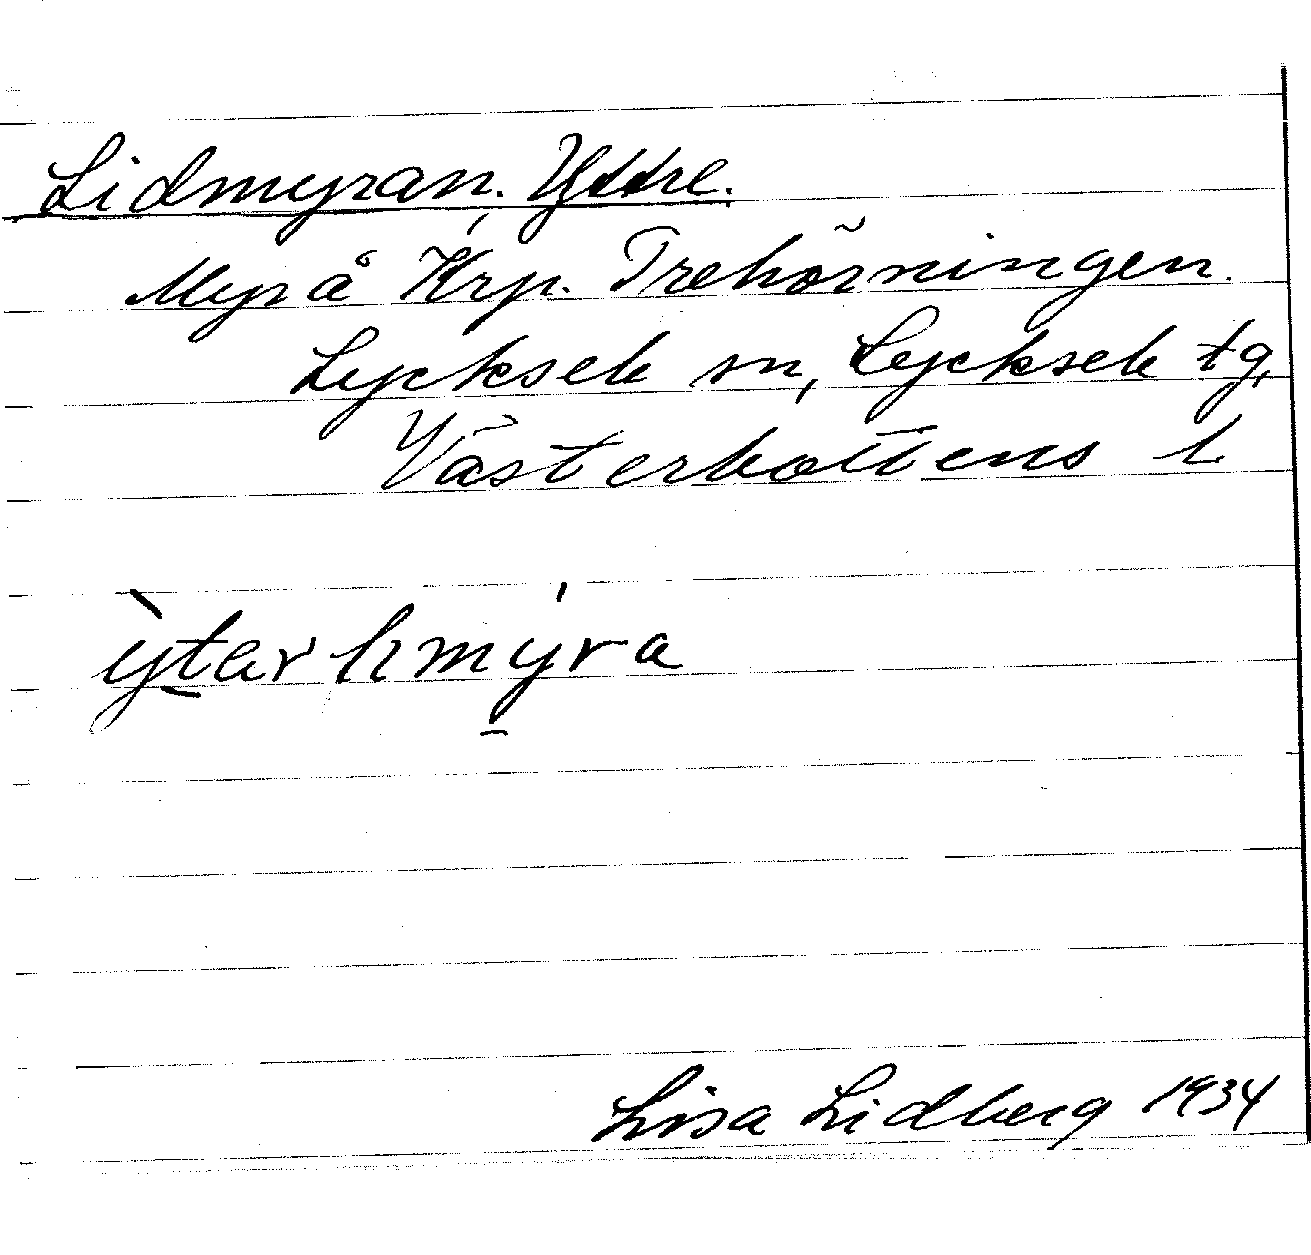 Lidmyran, Yttre.
Myr å Krp. Trehörningen.
Lycksele sn, Lycksele tg,
Västerbottens l
ỳtar limýra
Lisa Lidberg 1934